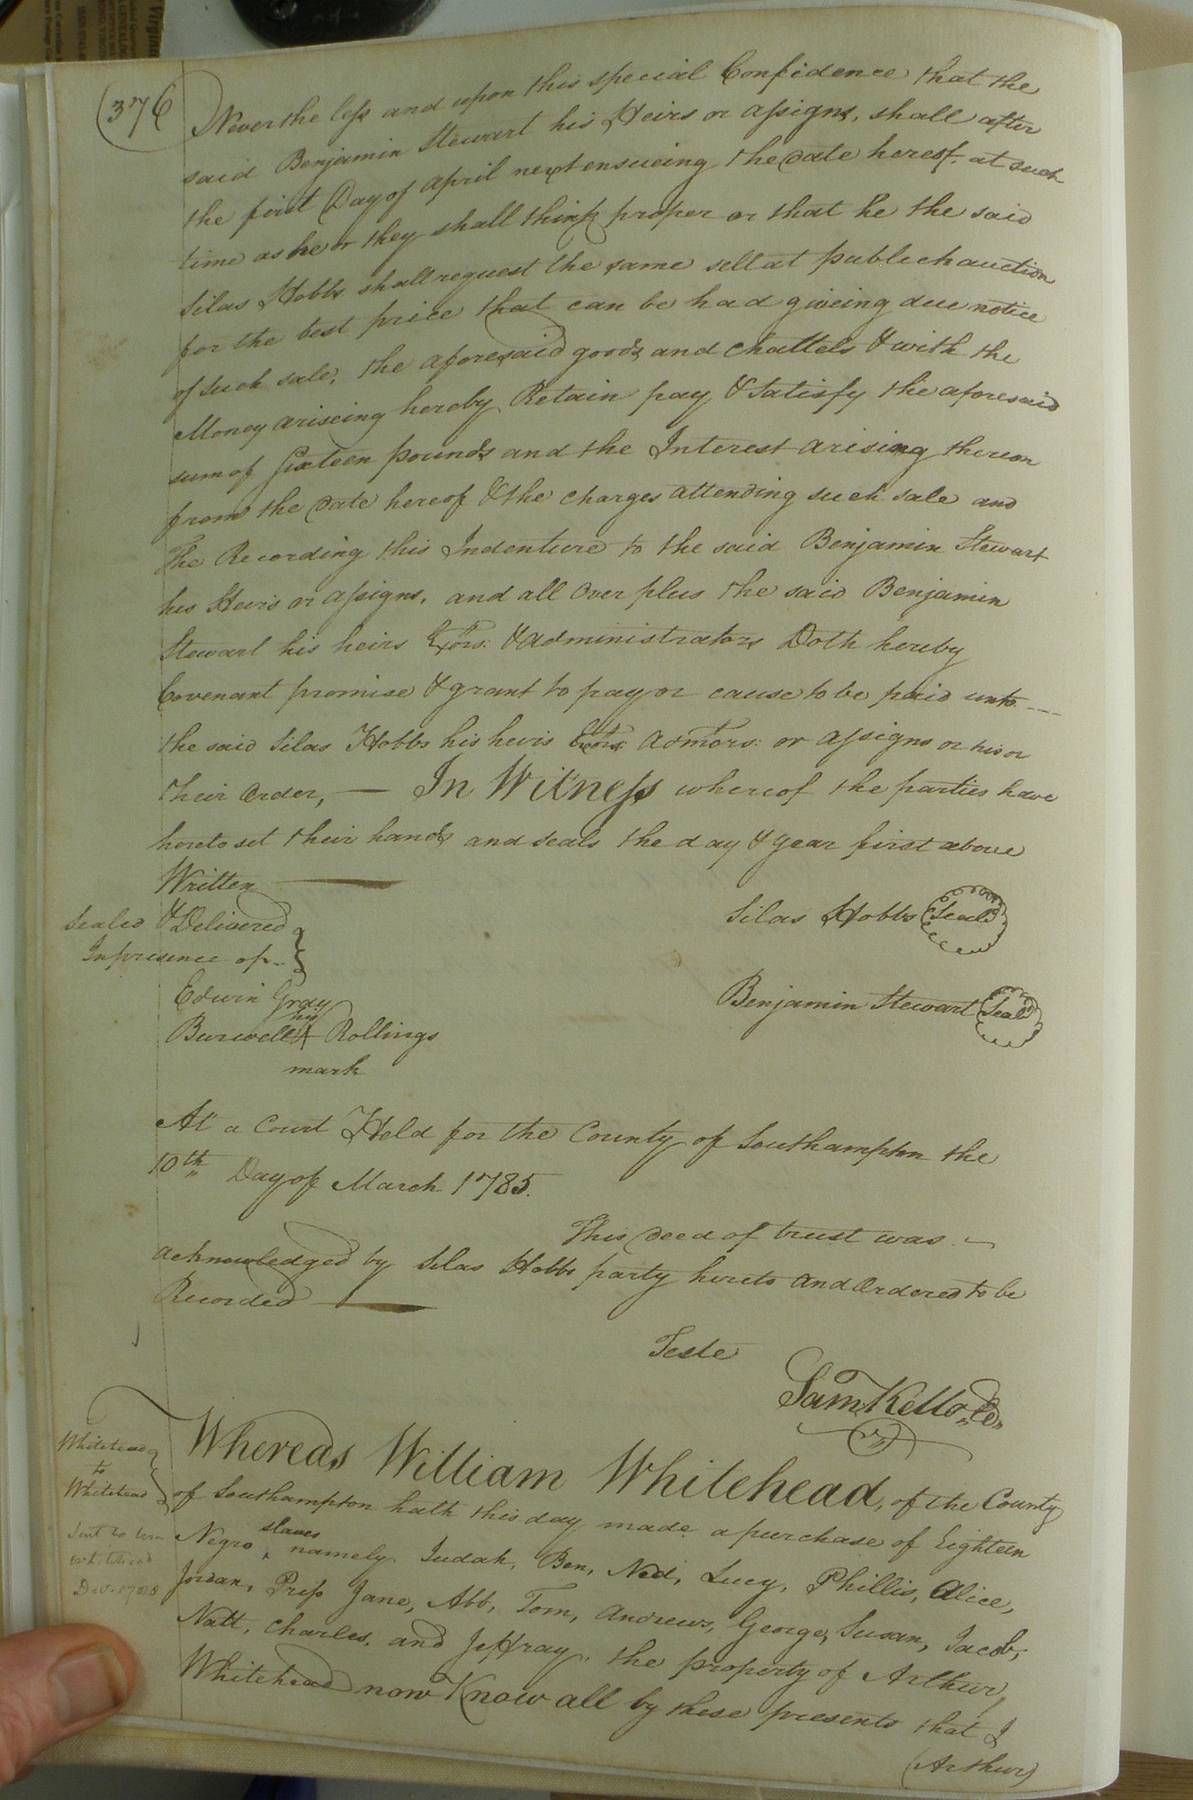 (376
Neverthe less and upon this special Confidence that the
said Benjamin Stewart his Heirs or assigns, shall after
the first Day of april next ensueing the date hereof at such
time as he or they shall think proper or that he the said
Silas Hobbs shall request the same sell at publick auction
for the best price that can be had giveing due notice
of such sale, the aforesaid goods and Chattels & with the
Money ariseing hereby Retain pay & Satisfy the aforesaid
sum of Sixteen pounds and the Interest arising thereon
from the date hereof & the charges attending such sale and
The Recording this Indenture to the said Benjamin Stewart
his Heirs or assigns, and all Over plus the said Benjamin
Stewart his heirs Exors. & administrators Doth hereby
Covenant promise & grant to pay or cause to be paid unto
the said Silas Hobbs his heirs Exors. admors: or assigns or his or
their Order, — In Witness whereof the parties have
hereto set their hands and seals the day & year first above
Written
Sealed & Delivered
In presence of
Silas Hobbs Seal
Edwin Gray
Benjamin Stewart Seal
his
Burwell + Rollings
mark
At a Court Held for the County of Southampton the
10th Day of March 1785.
This deed of trust was
acknowledged by Silas Hobbs party hereto and Ordered to be
Recorded
Teste
Sam Kello
Whitehead
to
Whitehead
Whereas William Whitehead, of the County
of Southampton hath this day made a purchase of Eighteen
slaves
Negro ‸ namely Judah, Ben, Ned, Lucy, Phillis, Alice,
Jordan, Priss Jane, Abb, Tom, Andrews, George, Susan, Jacob,
Natt, Charles, and Jeffray, the property of Arthur
Whitehead now Know all by these presents that I
(Arthur)
Sent to Wm
Whitehead